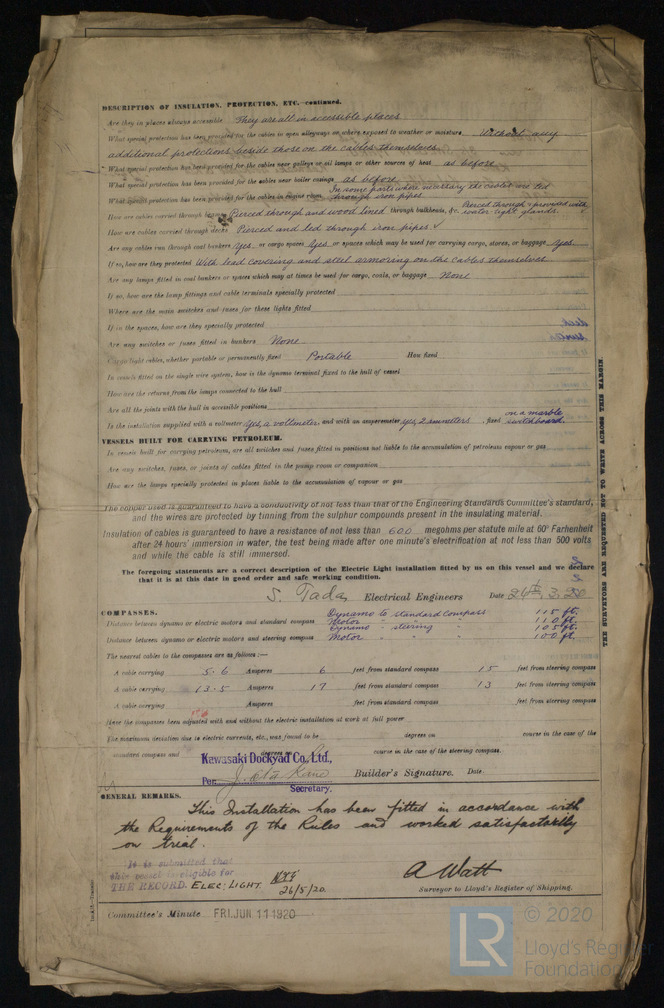 DESCRIPTION OF INSULATION, PROTECTION, ETC.—continued.
Are they in places always accessible They are all in accessible places
What special protection has been provided for the cables in open alleyways or where exposed to weather or moisture Without any
additional protections beside those on the cables themselves.
What special protection has been provided for the cables near galleys or oil lamps or other sources of heat as before
What special protection has been provided for the cables near boiler casings as before
What special protection has been provided for the cables in engine room In some parts where necessary the cables are led through iron pipes.
How are cables carried through beams Pierced through and wood lined through bulkheads, &c. Pierced through & provided with water tight glands.
How are cables carried through decks Pierced and led through iron pipes. ✓
Are any cables run through coal bunkers yes, or cargo spaces yes or spaces which may be used for carrying cargo, stores, or baggage yes.
If so, how are they protected With lead covering and steel armoring on the cables themselves
Are any lamps fitted in coal bunkers or spaces which may at times be used for cargo, coals, or baggage None
If so, how are the lamp fittings and cable terminals specially protected
Where are the main switches and fuses for these lights fitted
If in the spaces, how are they specially protected
Are any switches or fuses fitted in bunkers None
Cargo light cables, whether portable or permanently fixed Portable How fixed
In vessels fitted on the single wire system, how is the dynamo terminal fixed to the hull of vessel
How are the returns from the lamps connected to the hull
Are all the joints with the hull in accessible positions
Is the installation supplied with a voltmeter yes, a voltmeter, and with an amperemeter yes, 2 ammeters, fixed on a marble switchboard.
VESSELS BUILT FOR CARRYING PETROLEUM.
In vessels built for carrying petroleum, are all switches and fuses fitted in positions not liable to the accumulation of petroleum vapour or gas
Are any switches, fuses, or joints of cables fitted in the pump room or companion
How are the lamps specially protected in places liable to the accumulation of vapour or gas
The copper used is guaranteed to have a conductivity of not less than that of the Engineering Standards Committee's standard,
and the wires are protected by tinning from the sulphur compounds present in the insulating material.
Insulation of cables is guaranteed to have a resistance of not less than 600 megohms per statute mile at 60° Farhenheit
after 24 hours' immersion in water, the test being made after one minute's electrification at not less than 500 volts
and while the cable is still immersed.
The foregoing statements are a correct description of the Electric Light installation fitted by us on this vessel and we declare
that it is at this date in good order and safe working condition.
S. Tada, Electrical Engineers Date 24th, 3, 20
COMPASSES.
Distance between dynamo or electric motors and standard compass Dynamo to standard compass 115 ft.
Motor " " " 110 ft.
Distance between dynamo or electric motors and steering compass Dynamo " steering " 105 ft.
Motor " " " 100 ft.
The nearest cables to the compasses are as follows:—
A cable carrying 5.6 Amperes 6 feet from standard compass 15 feet from steering compass
A cable carrying 13.5 Amperes 17 feet from standard compass 13 feet from steering compass
A cable carrying Amperes feet from standard compass feet from steering compass
Have the compasses been adjusted with and without the electric installation at work at full power
The maximum deviation due to electric currents, etc., was found to be degrees on course in the case of the
standard compass and degrees on course in the case of the steering compass.
Kawasaki Dockyard Co., Ltd.,
Per. Builder's Signature. Date
Secretary.
GENERAL REMARKS.
This Installation has been fitted in accordance with
the Requirements of the Rules and worked satisfactorily
on trial.
It is submitted that
this vessel is eligible for
THE RECORD. ELEC: LIGHT. 26/5/20.
A Watt
Surveyor to Lloyd's Register of Shipping.
Committee's Minute FRI. JUN. 11 1920
THE SURVEYORS ARE REQUESTED NOT TO WRITE ACROSS THIS MARGIN.
© 2020
LR
Lloyd's Register
Foundation